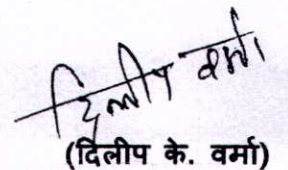 दिलीप वर्मा
(दिलीप के. वर्मा)